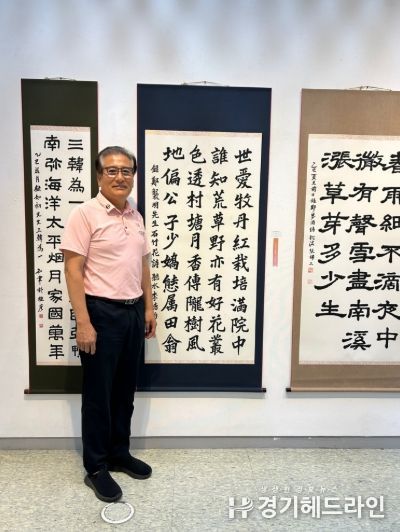 雨細不滴夜中
微有聲雪盡南溪
漲草芽多少生
世愛牡丹紅栽培滿院中
誰知荒草野亦有好花叢
色透村塘月香傳隴樹風
地偏公子少嬌態属田翁
錄鄭襲明先生石竹花詩
三韓為一
南弥海洋太平烟月家國萬年
경기헤드라인